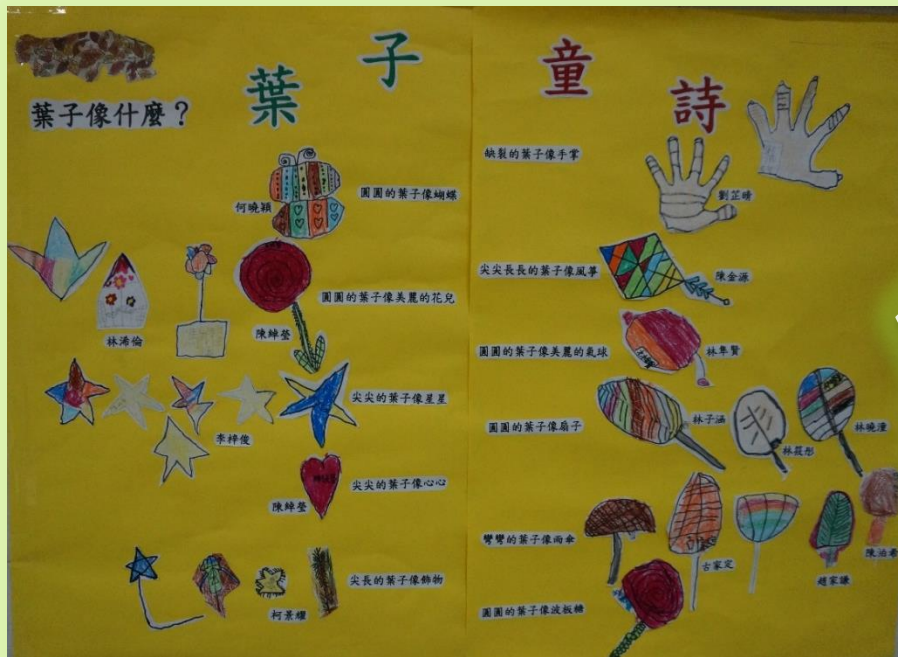 葉子童詩
葉子像什麼？
圓圓的葉子像蝴蝶
何曉穎
圓圓的葉子像美麗的花兒
林浠倫
陳綽瑩
尖尖的葉子像星星
李梓俊
尖尖的葉子像心心
陳綽瑩
尖長的葉子像飾物
柯景耀
缺裂的葉子像手掌
劉芷晴
尖尖長長的葉子像風箏
陳金源
圓圓的葉子像美麗的氣球
林隼賢
圓圓的葉子像扇子
林子涵
林筱彤
林曉潼
彎彎的葉子像雨傘
古家定
趙家謙
陳泊希
圓圓的葉子像波板糖